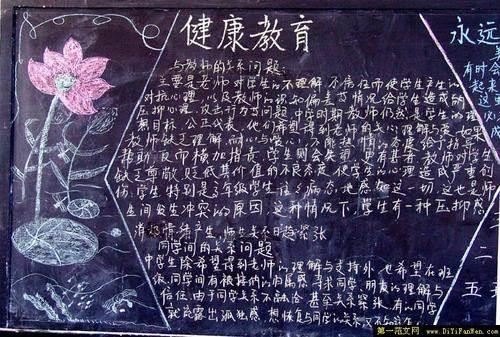 健康教育
与教师的关系问题：
主要是老师对学生的不理解、不信任而使学生产生的
对抗心理，以及教师的认知偏差等情况给学生造成的
压抑心理，攻击行为等问题。中学时期教师仍然是学生的理
想目标、公正代表，他们希望得到老师的关心理解与爱。如果
教师缺乏理解、耐心与爱心，不能以热情的态度给予指导
帮助，反而横加指责，学生则会失望。更有甚者，教师对学生
缺乏尊敬，贬低其价值的不良态度，使学生的心理造成严重创
伤，学生特别是三年级学生
这一切，这也是师
生间发生冲突的原因，这种情况下，学生有一种压抑感
消极情绪产生，师生关系日趋紧张
同学间的关系问题
中学生除希望得到老师的理解与支持外，也希望在班
级、同学间有被接纳的归属感，寻求同学、朋友的理解与
信任。由于同学关系不融洽，甚至关系紧张，有的同学
就流露出孤独感，想恢复与同学的关系，又不知
永远
有时
起
这
二
五
第一范文网
www.DiYiFanWen.com